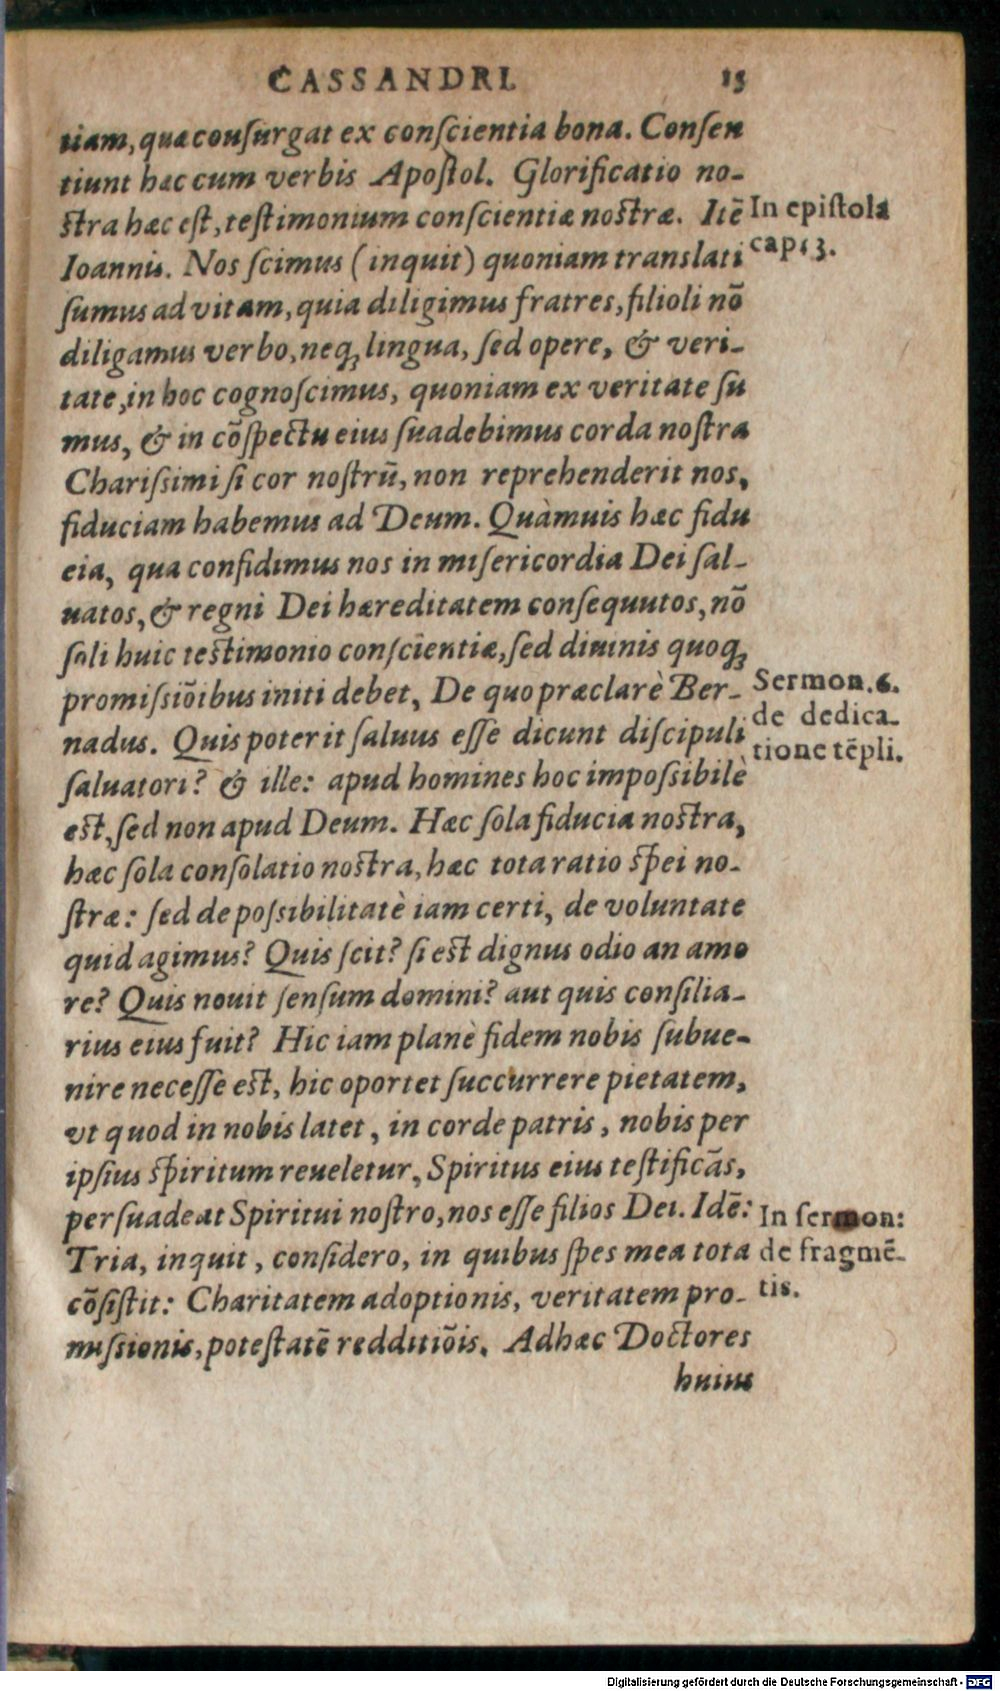 CASSANDRI. 15
tiam, quæ consurgat ex conscientia bona. Consen
tiunt hæc cum verbis Apostol. Glorificatio no-
stra hæc est, testimonium conscientiæ nostræ. Itē
In epistola
Ioannis. Nos scimus (inquit) quoniam translati
cap: 3.
sumus ad vitam, quia diligimus fratres, filioli nō
diligamus verbo, neq; lingua, sed opere, & veri-
tate, in hoc cognoscimus, quoniam ex veritate su
mus, & in cōspectu eius suadebimus corda nostra
Charissimi si cor nostrū, non reprehenderit nos,
fiduciam habemus ad Deum. Quàmuis hæc fidu
eia, qua confidimus nos in misericordia Dei sal-
uatos, & regni Dei hæreditatem consequutos, nō
soli huic testimonio conscientiæ, sed diuinis quoq;
promissiōibus initi debet, De quo præclarè Ber-
Sermon. 6.
de dedica-
nadus. Quis poterit saluus esse dicunt discipuli
tione tēpli.
saluatori? & ille: apud homines hoc impossibilè
est, sed non apud Deum. Hæc sola fiducia nostra,
hæc sola consolatio nostra, hæc tota ratio spei no-
stræ: sed de possibilitatè iam certi, de voluntate
quid agimus? Quis scit? si est dignus odio an amo
re? Quis nouit sensum domini? aut quis consilia-
rius eius fuit? Hic iam planè fidem nobis subue-
nire necesse est, hic oportet succurrere pietatem,
vt quod in nobis latet, in corde patris, nobis per
ipsius spiritum reueletur, Spiritus eius testificās,
persuadeat Spiritui nostro, nos esse filios Dei. Idē:
In sermon:
Tria, inquit, considero, in quibus spes mea tota
de fragmē-
cōsistit: Charitatem adoptionis, veritatem pro-
tis.
missionis, potestatē redditiōis. Adhæc Doctores
huius
Digitalisierung gefördert durch die Deutsche Forschungsgemeinschaft - DFG